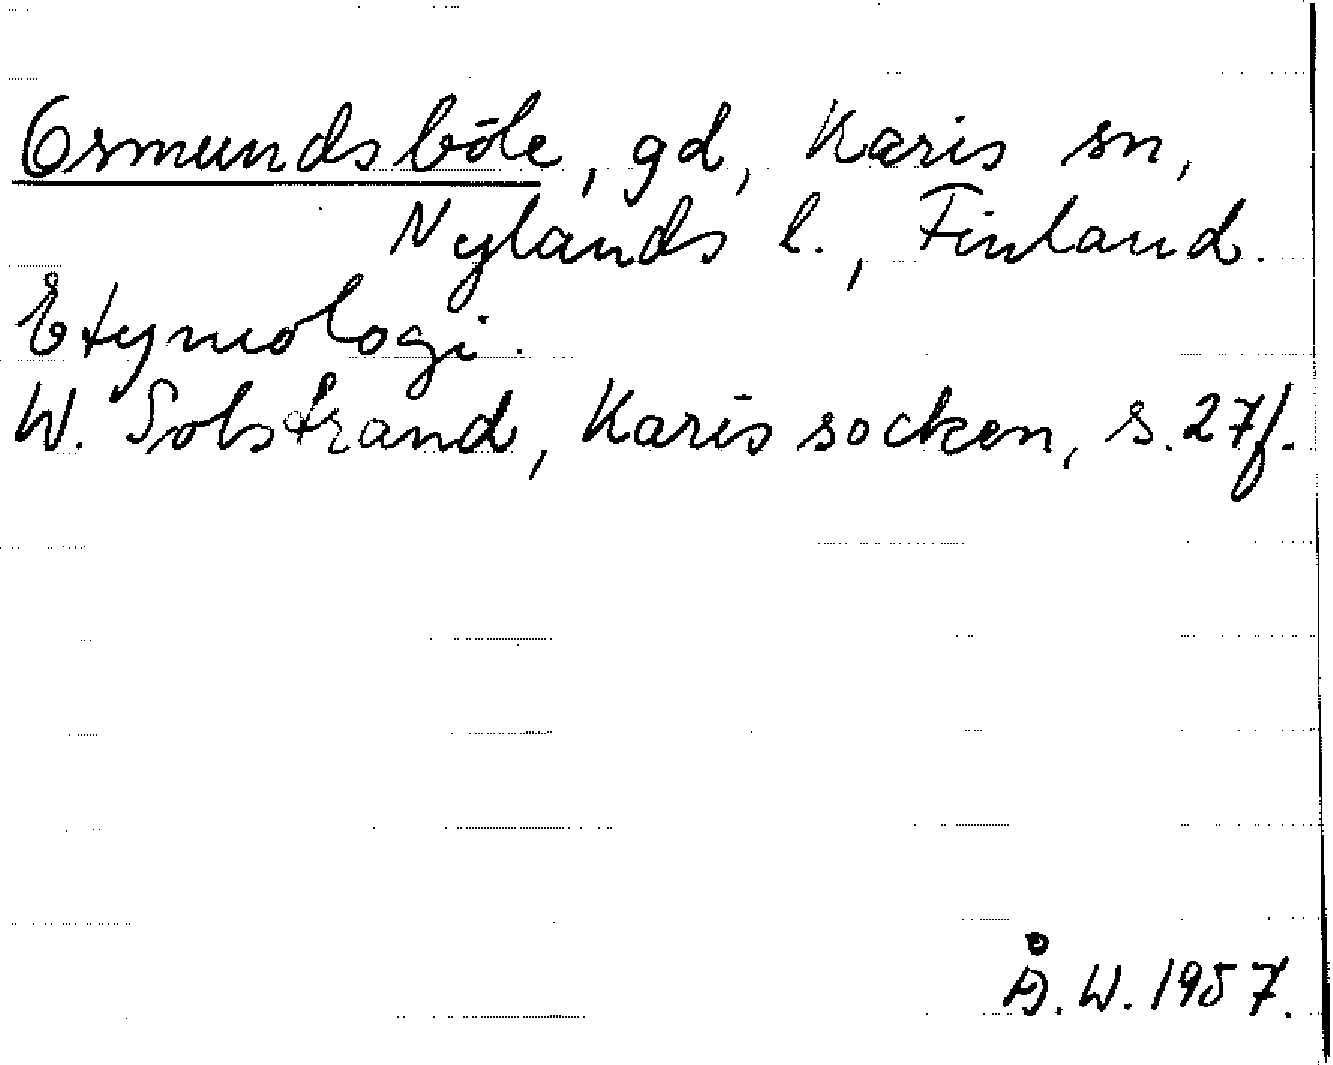 Osmundsböle, gd, Karis sn,
Nylands l., Finland.
Etymologi.
W. Solstrand, Karis socken, s. 27f.
Å. W. 1957.